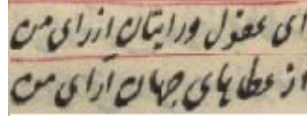 ای عقول و رایتان از رای من
از عطاهای جهان آرای من